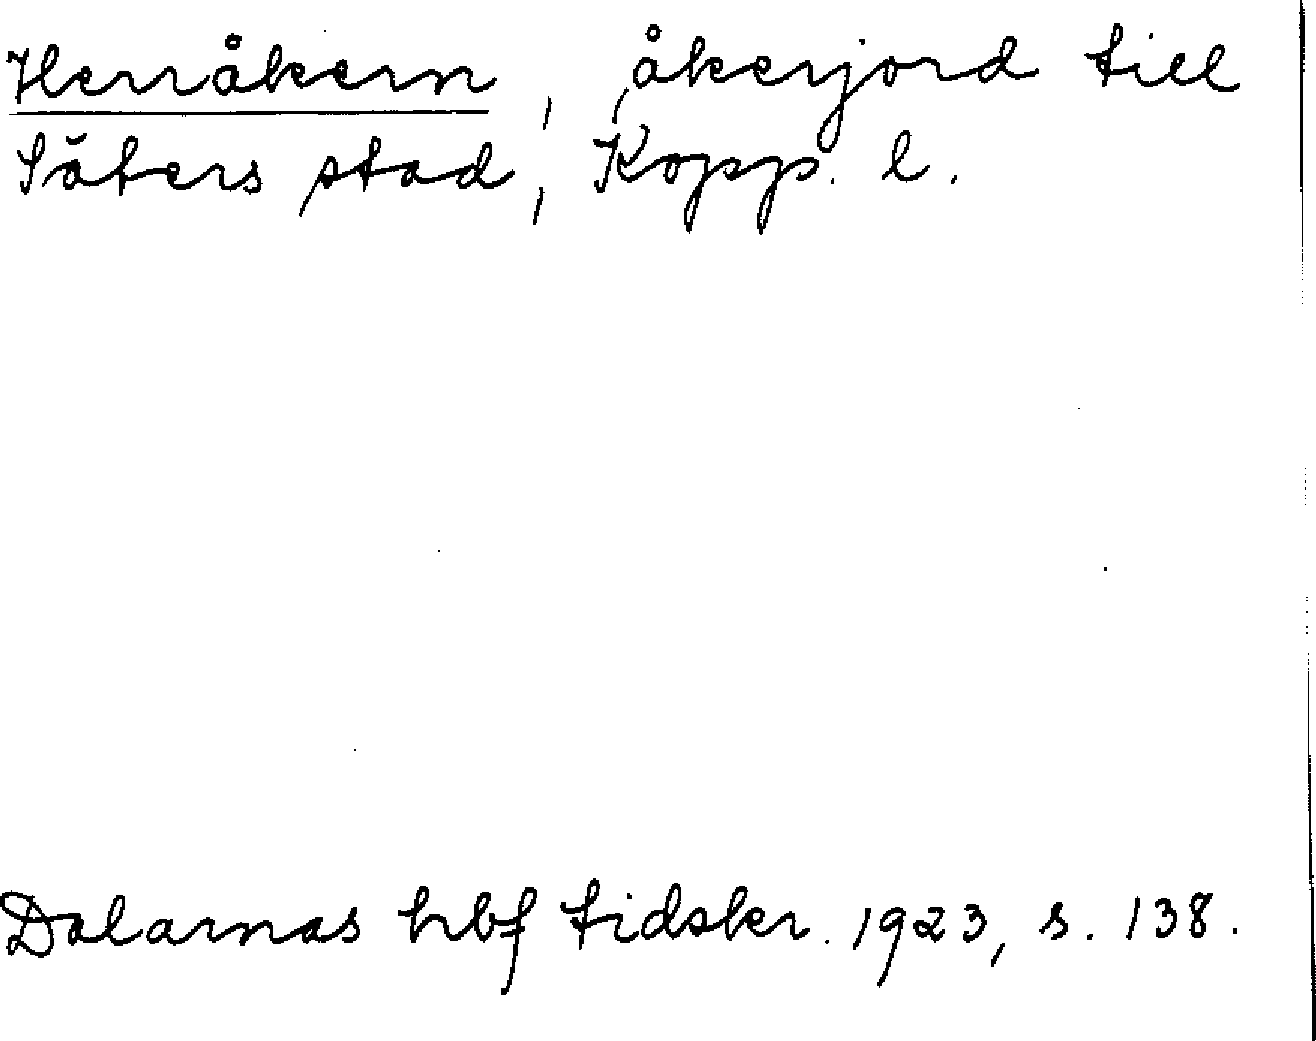 Herråkern, åkerjord till
Säters stad, Kopp. l.
Dalarnas hbf tidskr. 1923, s. 138.